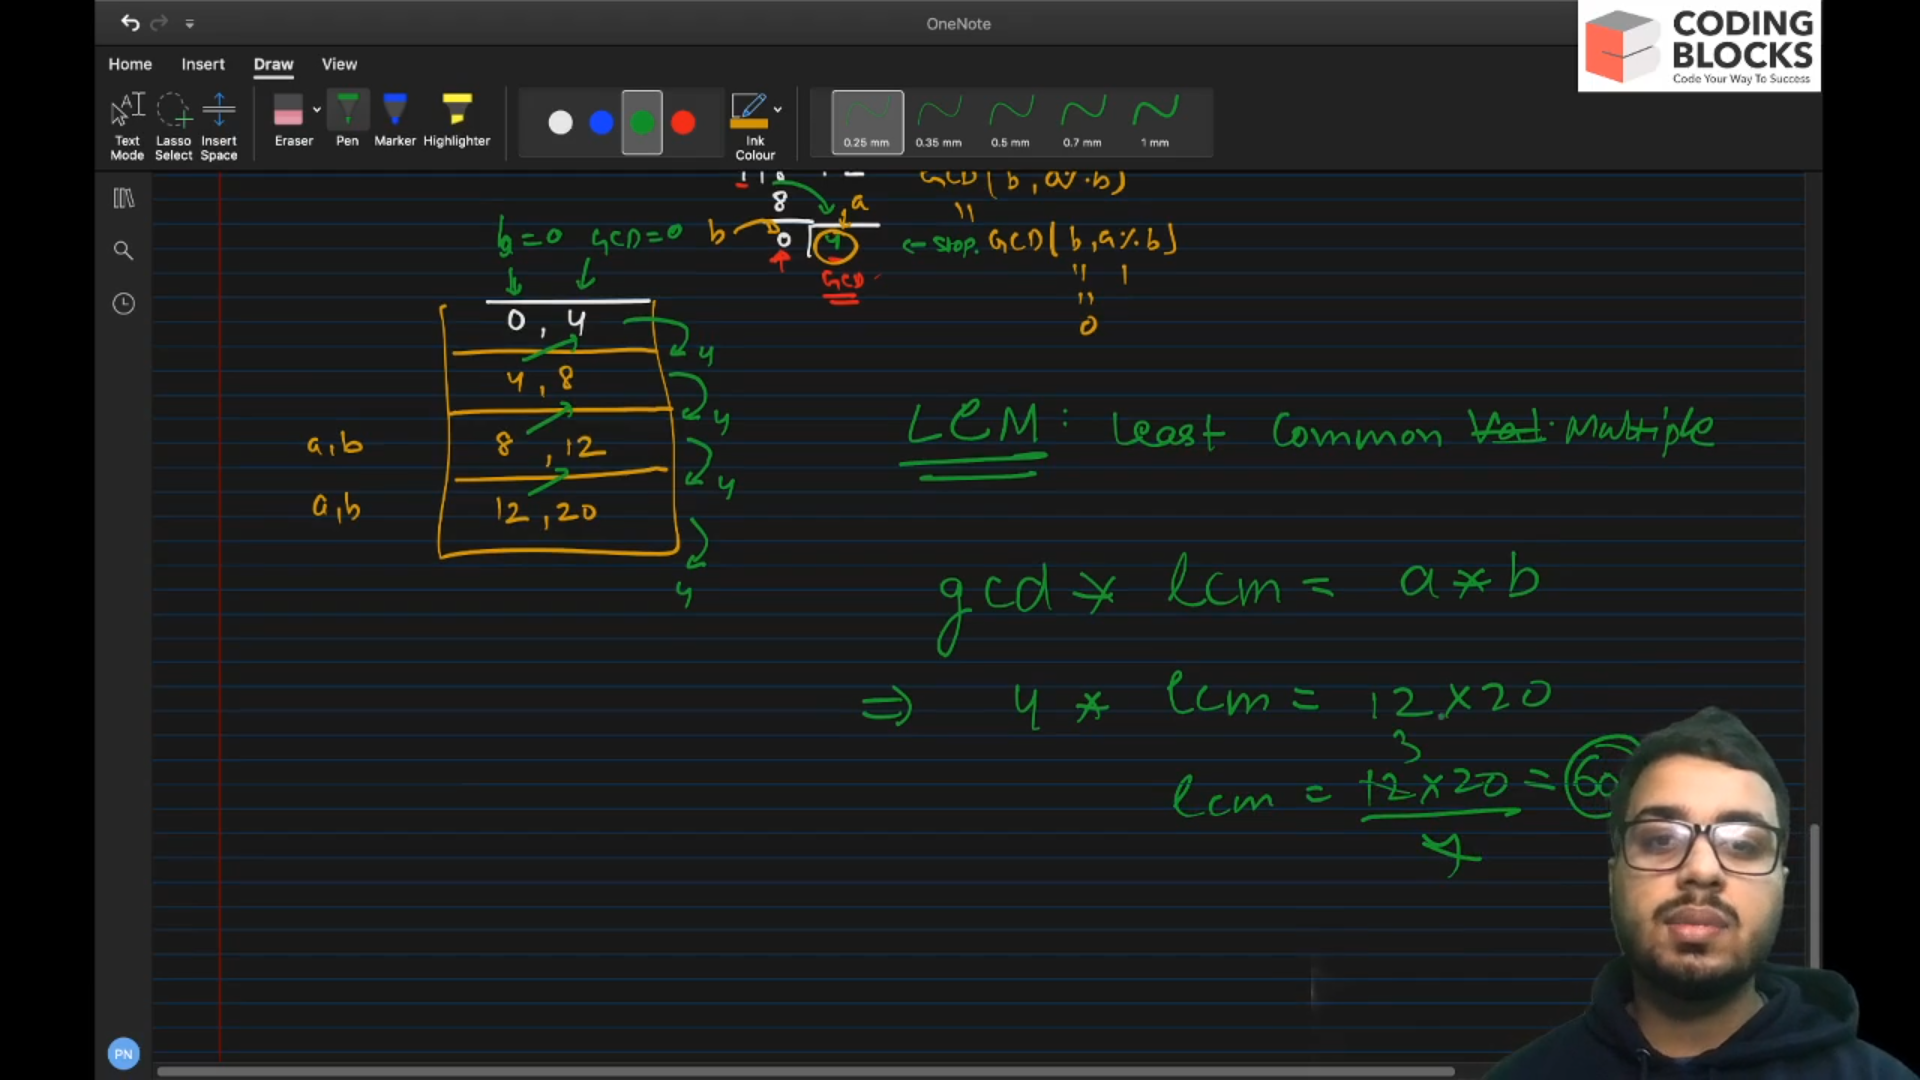 OneNote
CODING
BLOCKS
Code Your Way To Success
Home Insert Draw View
Text Mode
Lasso Select
Insert Space
Eraser
Pen
Marker
Highlighter
Ink Colour
0.25 mm
0.35 mm
0.5 mm
0.7 mm
1 mm
GCD ( b, a%b)
8
a
b=0 GCD=0
b
0 4
← stop. GCD( b, a%b)
GCD
0
0, 4
4
4, 8
4
a,b 8, 12
4
a,b 12, 20
4
LCM : Least Common Multiple
gcd * lcm = a * b
⇒ 4 * lcm = 12 x 20
3
lcm = 12 x 20 = 60
4
PN